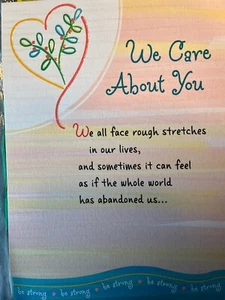 We Care
About You
We all face rough stretches
in our lives,
and sometimes it can feel
as if the whole world
has abandoned us...
be strong be strong be strong be strong be strong